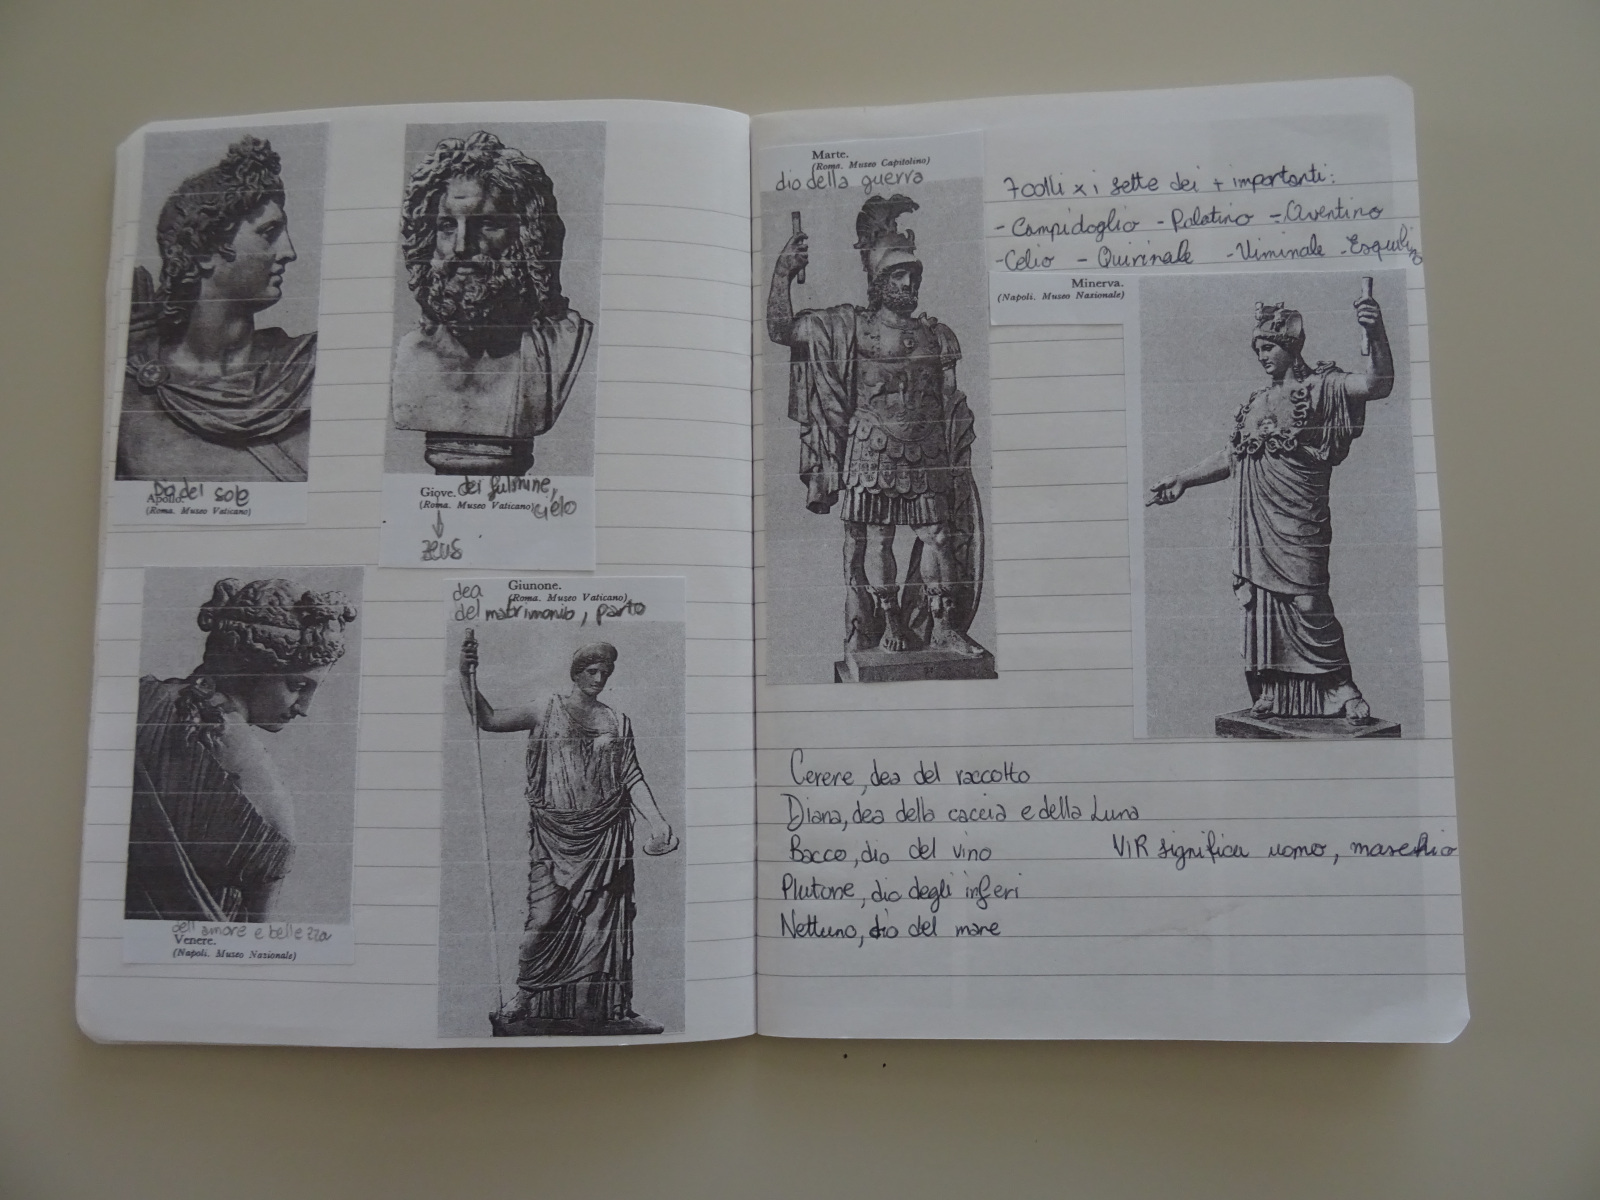 Dio del sole
Apollo.
(Roma. Museo Vaticano)
Giove. dei fulmine,
(Roma. Museo Vaticano) cielo
↓
ZEUS
dell'amore e bellezza
Venere.
(Napoli. Museo Nazionale)
dea Giunone.
(Roma. Museo Vaticano)
del matrimonio, parto
Marte.
(Roma. Museo Capitolino)
dio della guerra
7 colli x i sette dei + importanti:
- Campidoglio - Palatino - Aventino
- Celio - Quirinale - Viminale - Esquilino
Minerva.
(Napoli. Museo Nazionale)
Cerere, dea del raccolto
Diana, dea della caccia e della Luna
Bacco, dio del vino
VIR significa uomo, maschio
Plutone, dio degli inferi
Nettuno, dio del mare